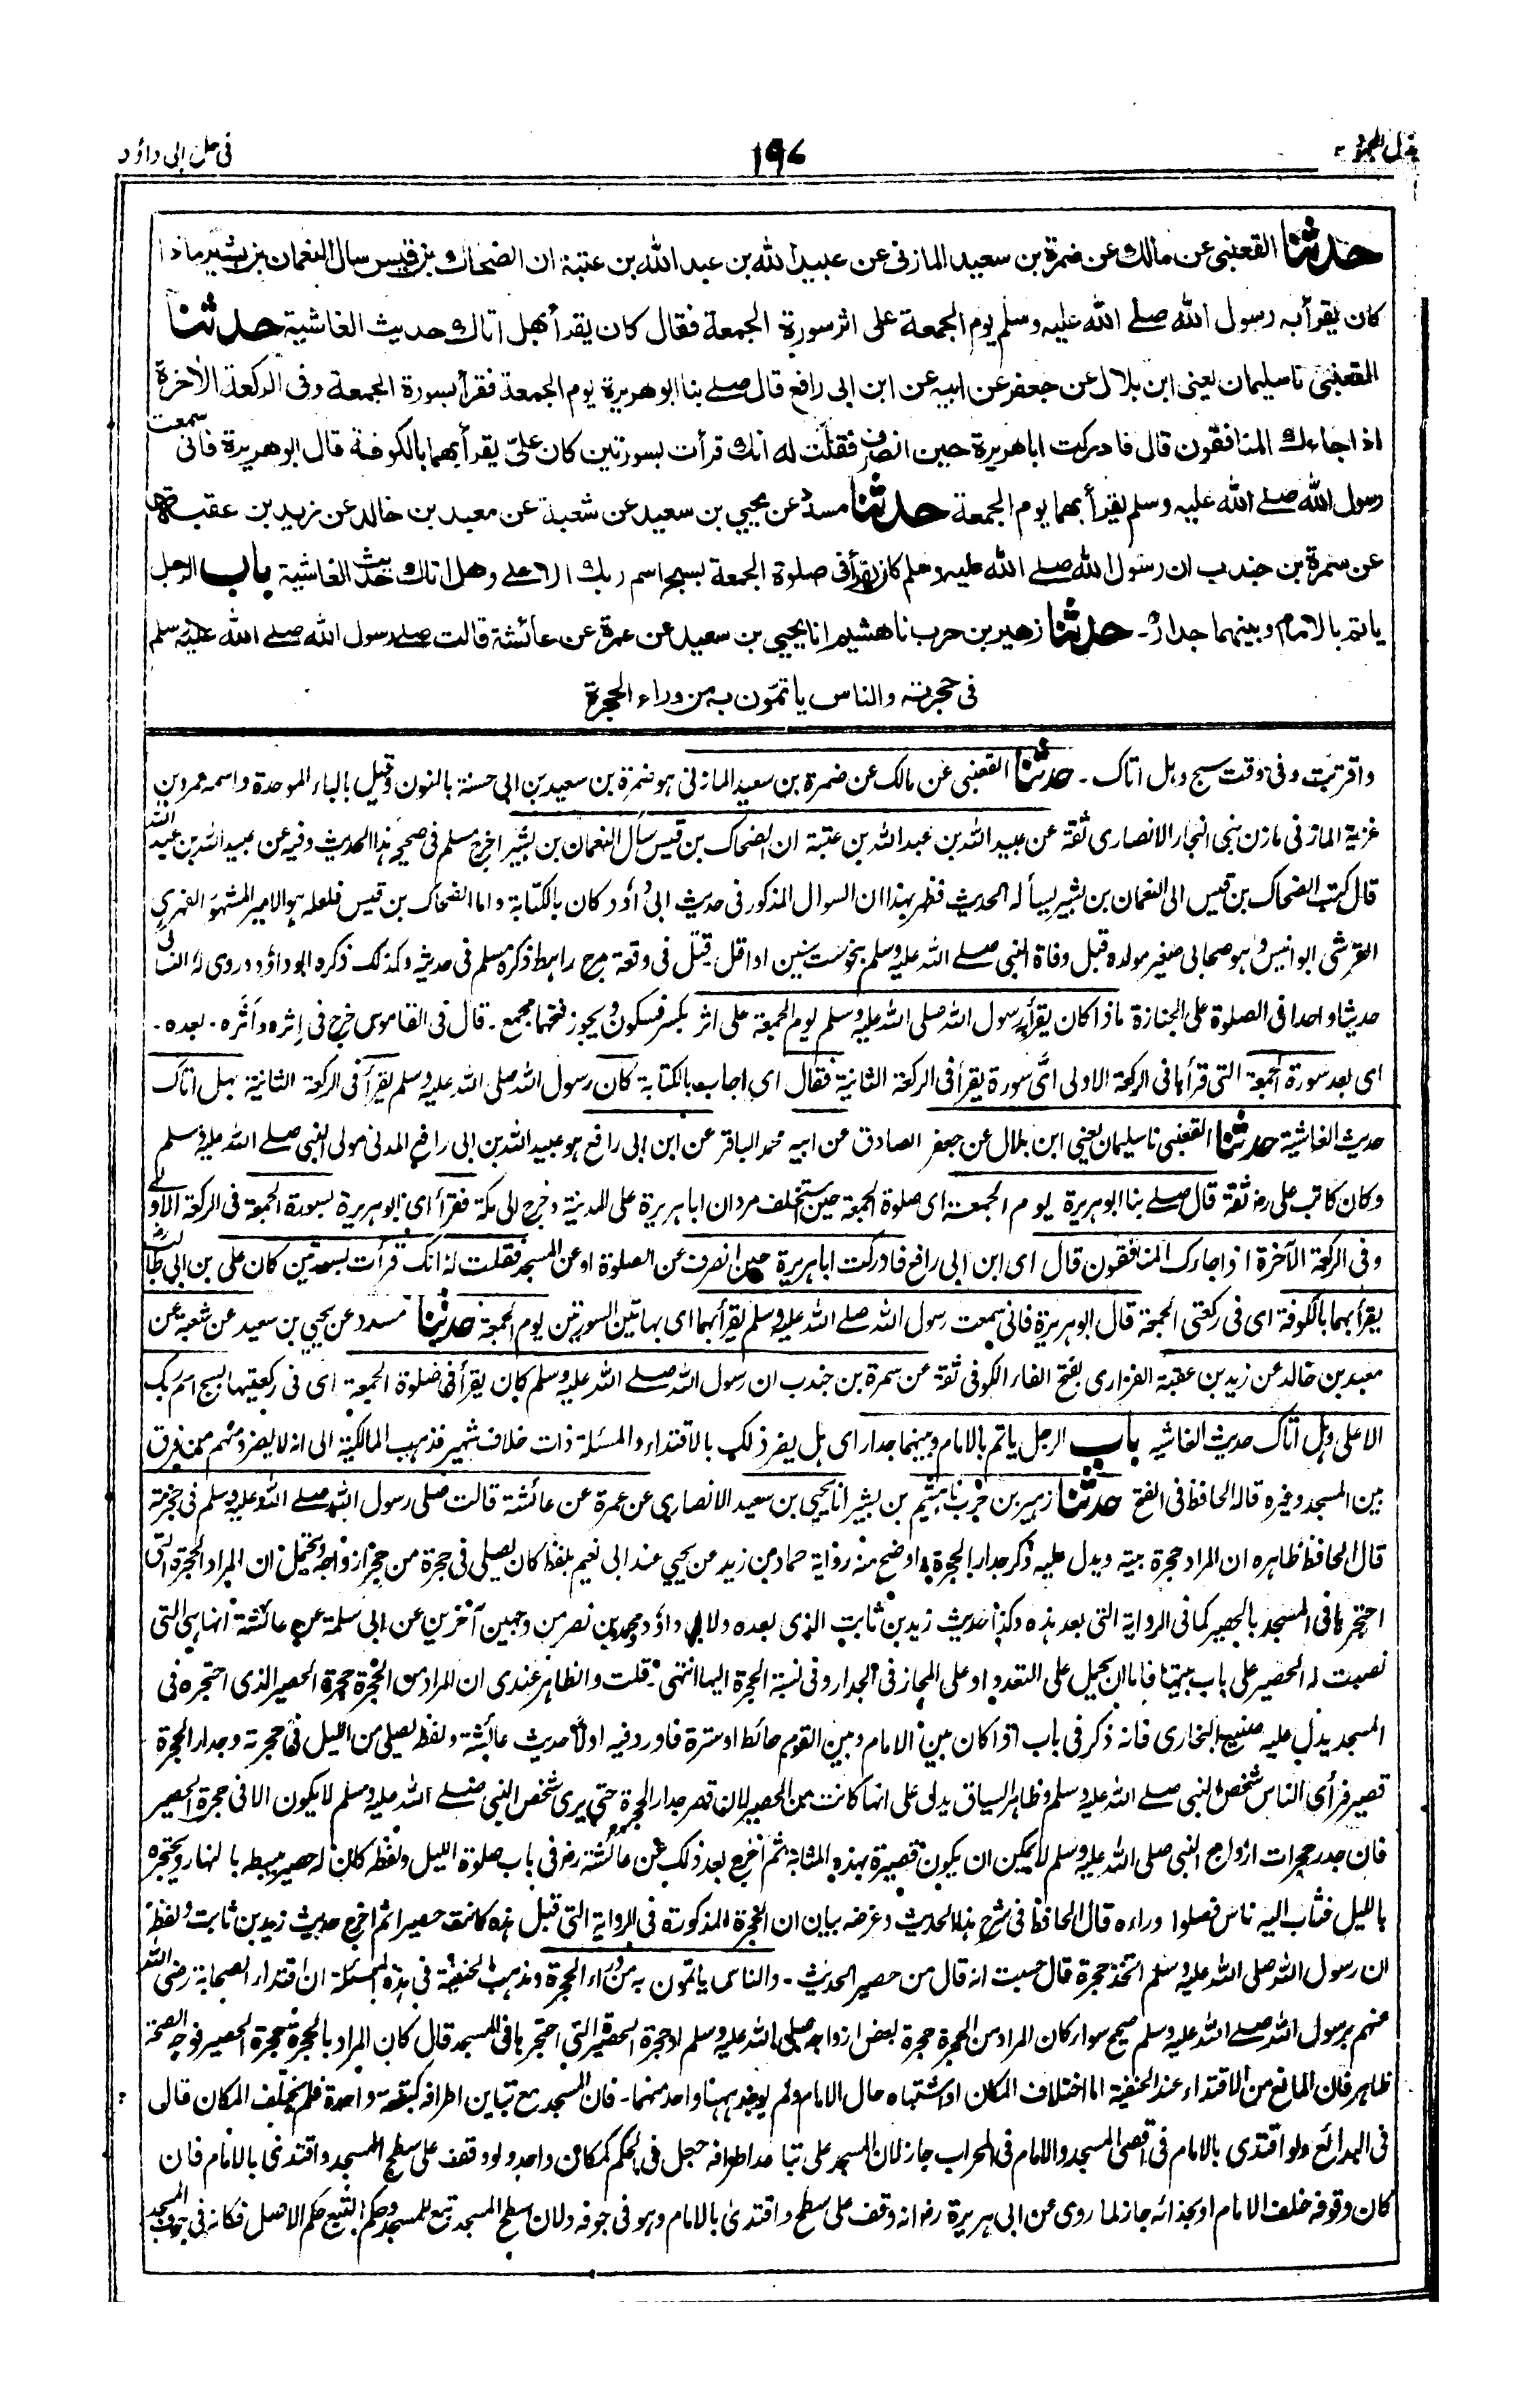 بذل المجهود
١٩٧
في حل ابي داؤد
حدثنا القعنبي عن مالك عن ضمرة بن سعيد المازني عن عبيد الله بن عبد الله بن عتبة ان الضحاك بن قيس سال النعمان بن بشير ماذا
كان يقرأ به رسول الله صلى الله عليه وسلم يوم الجمعة على اثر سورة الجمعة فقال كان يقرأ بهل اتاك حديث الغاشية حدثنا
القعنبي نا سليمان يعني ابن بلال عن جعفر عن ابيه عن ابن ابي رافع قال صلے بنا ابو هريرة يوم الجمعة فقرأ بسورة الجمعة وفي الركعة الاخرة
اذا جاءك المنافقون قال فادركت ابا هريرة حين انصرف فقلت له انك قرأت بسورتين كان علي يقرأ بهما بالكوفة قال ابو هريرة فاني سمعت
رسول الله صلے الله عليه وسلم يقرأ بهما يوم الجمعة حدثنا مسدد عن يحيي بن سعيد عن شعبة عن معبد بن خالد عن زيد بن عقبة
عن سمرة بن جندب ان رسول الله صلے الله عليه وسلم كان يقرأ في صلوة الجمعة بسبح اسم ربك الاعلے وهل اتاك حديث الغاشية باب الرجل
ياتم بالامام وبينهما جدار۔ حدثنا زهير بن حرب نا هشيم انا يحيي بن سعيد عن عمرة عن عائشة قالت صلے رسول الله صلے الله عليه وسلم
في حجرته والناس ياتمون به من وراء الحجرة
واقتربت وفي وقت سبح وهل اتاك۔ حدثنا القعنبي عن مالك عن ضمرة بن سعيد المازني هو ضمرة بن سعيد بن ابي حسنة بالنون وقيل بالباء الموحدة واسمه عمرو بن
غزية المازني مازن بني النجار الانصاري ثقة عن عبيد الله بن عبد الله بن عتبة ان الضحاك بن قيس سأل النعمان بن بشير اخرج مسلم في صحيحه هذا الحديث وفيه عن عبيد الله بن عبد الله
قال كتب الضحاك بن قيس الى النعمان بن بشير يسأله الحديث فظهر بهذا ان السوال المذكور في حديث ابي داؤد كان بالكتابة واما الضحاك بن قيس فلعله هو الامير المشهور الفهري
القرشي ابو انيس وهو صحابي صغير مولده قبل وفاة النبي صلے الله عليه وسلم بنحو ست سنين او اقل قتل في وقعة مرج راهط ذكره مسلم في حديثه وكذلك ذكره ابو داؤد وروى له النسائي
حديثا واحدا في الصلوة على الجنازة ماذا كان يقرأ به رسول الله صلى الله عليه وسلم يوم الجمعة على اثر بكسر فسكون ويجوز فتحهما مجمع۔ قال في القاموس خرج في إثره وأثره۔ بعده۔
اى بعد سورة الجمعة التي قرأها في الركعة الاولى أي سورة يقرأ في الركعة الثانية فقال اي اجاب بالكتابة كان رسول الله صلى الله عليه وسلم يقرأ في الركعة الثانية بهل اتاك
حديث الغاشية حدثنا القعنبي نا سليمان يعني ابن بلال عن جعفر الصادق عن ابيه محمد الباقر عن ابن ابي رافع هو عبيد الله بن ابي رافع المدني مولى النبي صلے الله عليه وسلم
وكان كاتب علي رض ثقة قال صلے بنا ابو هريرة يوم الجمعة اى صلوة الجمعة حين استخلف مروان ابا هريرة على المدينة وخرج الى مكة فقرأ اى ابو هريرة بسورة الجمعة في الركعة الاولے
وفي الركعة الآخرة اذا جاءك المنافقون قال اى ابن ابي رافع فادركت ابا هريرة حين انصرف عن الصلوة او عن المسجد فقلت له انك قرأت بسورتين كان علي بن ابي طالب رض
يقرأ بهما بالكوفة اى في ركعتي الجمعة قال ابو هريرة فاني سمعت رسول الله صلے الله عليه وسلم يقرأ بهما اى بهاتين السورتين يوم الجمعة حدثنا مسدد عن يحيي بن سعيد عن شعبة عن
معبد بن خالد عن زيد بن عقبة الفزاري بفتح الفاء الكوفي ثقة عن سمرة بن جندب ان رسول الله صلے الله عليه وسلم كان يقرأ في صلوة الجمعة اى في ركعتيها بسبح اسم ربك
الاعلى وهل أتاك حديث الغاشيه باب الرجل ياتم بالامام وبينهما جدار اى هل يضر ذلك بالاقتداء والمسئلة ذات خلاف شهير فذهب المالكية الى انه لا يضر ومنهم من فرق
بين المسجد وغيره قاله الحافظ في الفتح حدثنا زهير بن حرب نا هشيم بن بشير انا يحيي بن سعيد الانصاري عن عمرة عن عائشة قالت صلى رسول الله صلے الله عليه وسلم في حجرته
قال الحافظ ظاهره ان المراد حجرة بيته ويدل عليه ذكر جدار الحجرة واوضح منه رواية حماد بن زيد عن يحيي عند ابي نعيم بلفظ كان يصلي في حجرة من حجر ازواجه ويحتمل ان المراد الحجرة التي
احتجرها في المسجد بالحصير كما في الرواية التي بعد هذه وكذا حديث زيد بن ثابت الذي بعده ولابي داؤد ومحمد بن نصر من وجهين آخرين عن ابي سلمة عن عائشة انها هي التي
نصبت له الحصير على باب بيتها فاما ان يحمل على التعدد او على المجاز في الجدار وفي نسبة الحجرة اليها انتهى۔ قلت والظاهر عندي ان المراد من الحجرة حجرة الحصير الذي احتجره في
المسجد يدل عليه صنيع البخاري فانه ذكر في باب اذا كان بين الامام وبين القوم حائط او سترة فاورد فيه اولا حديث عائشة ولفظ يصلي من الليل في حجرته وجدار الحجرة
قصير فرأى الناس شخص النبي صلے الله عليه وسلم وظاهر السياق يدل على انها كانت من الحصير لان قصر جدار الحجرة حتى يرى شخص النبي صلے الله عليه وسلم لا يكون الا في حجرة الحصير
فان جدر حجرات ازواج النبي صلى الله عليه وسلم لا يمكن ان يكون قصيرة بهذه المثابة ثم اخرج بعد ذلك عن عائشة رض في باب صلوة الليل ولفظه كان له حصير يبسطه بالنهار ويحتجره
بالليل فثاب اليه ناس فصلوا وراءه قال الحافظ في شرح هذا الحديث وغرضه بيان ان الحجرة المذكورة في الرواية التي قبل هذه كانت حصيرا ثم اخرج حديث زيد بن ثابت ولفظه
ان رسول الله صلى الله عليه وسلم اتخذ حجرة قال حسبت انه قال من حصير الحديث۔ والناس ياتمون به من وراء الحجرة ومذهب الحنفية في هذه المسئلة ان اقتداء الصحابة رضي الله
عنهم برسول الله صلے الله عليه وسلم صحيح سواء كان المراد من الحجرة حجرة بعض ازواجه صلى الله عليه وسلم او حجرة الحصير التي احتجرها في المسجد قال كان المراد بالحجرة حجرة الحصير فوجه الصحة
ظاهر فان المانع من الاقتداء عند الحنفية اما اختلاف المكان او اشتباه حال الامام ولم يوجد ههنا واحد منهما۔ فان المسجد مع تباين اطرافه كبقعة واحدة فلم يختلف المكان قال
في البدائع ولو اقتدى بالامام في اقصى المسجد والامام في المحراب جاز لان المسجد على تباعد اطرافه جعل في الحكم كمكان واحد ولو وقف على سطح المسجد واقتدى بالامام فان
كان وقوفه خلف الامام او بحذائه جاز لما روى عن ابي هريرة رض انه وقف على سطح واقتدى بالامام وهو في جوفه ولان سطح المسجد تبع للمسجد وحكم التبع حكم الاصل فكانه في جوف المسجد